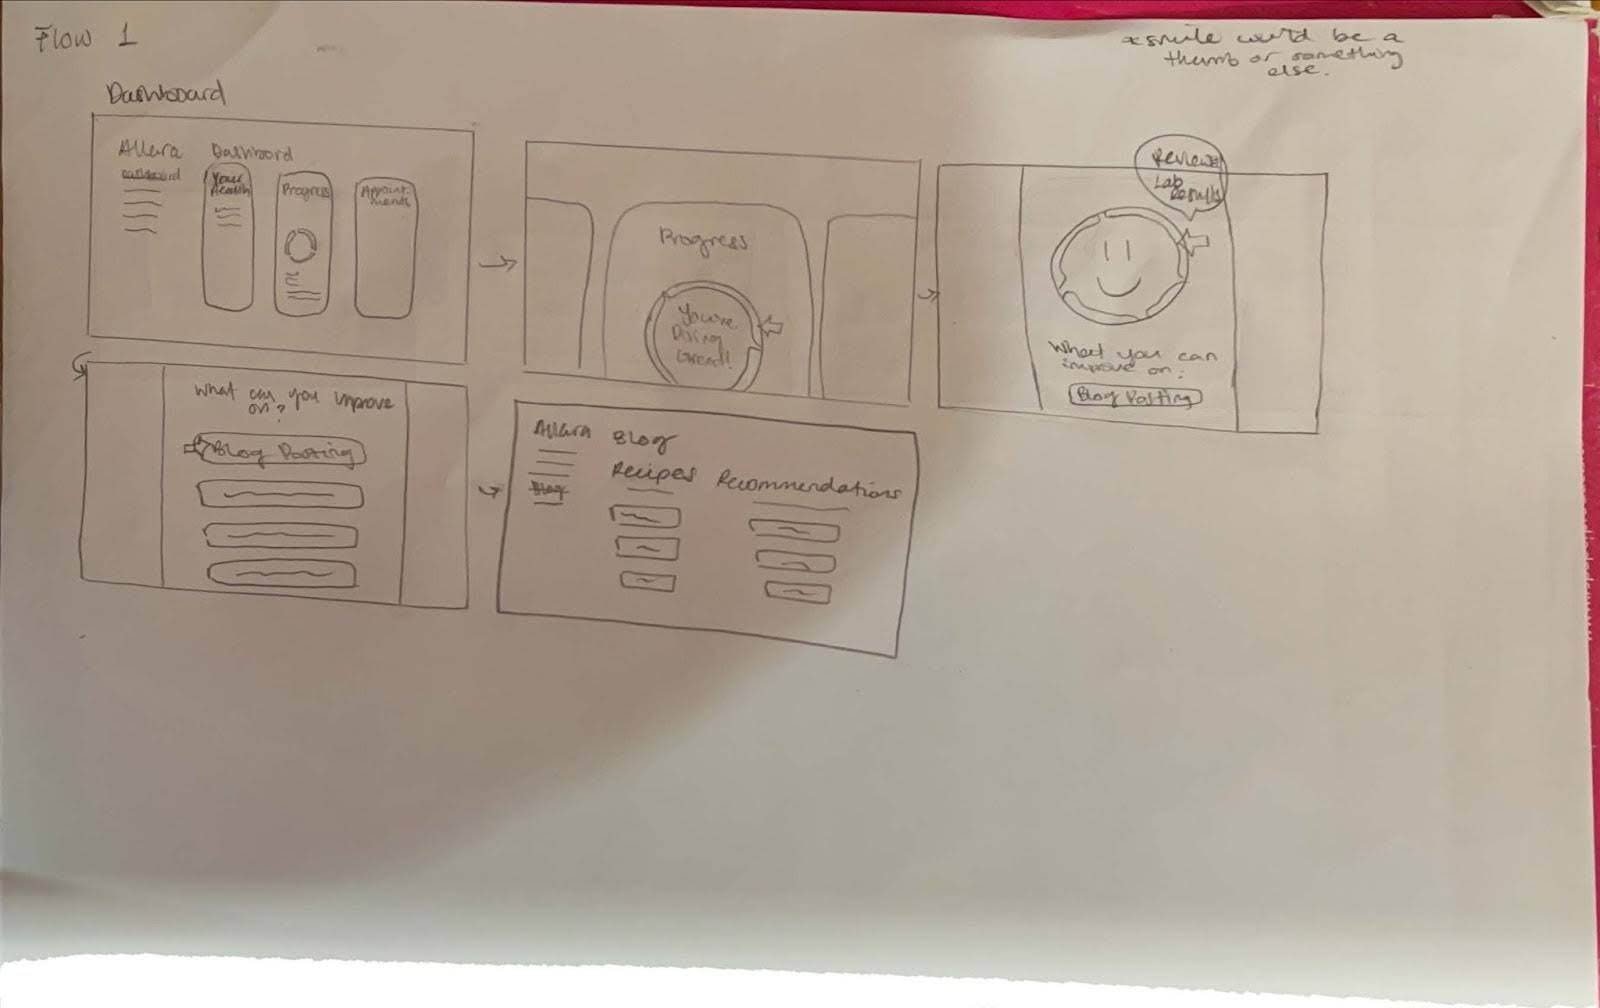 Flow 1
* smile could be a
thumb or something
else.
Dashboard
Allara
Dashboard
dashboard
Your
Health
Progress
Appoint
ments
Progress
You're
Doing
Great!
Review
Lab
Results
What you can
improve on:
Blog Posting
What can you improve
on?
Blog Posting
Allara
Blog
Blog
Recipes
Recommendations